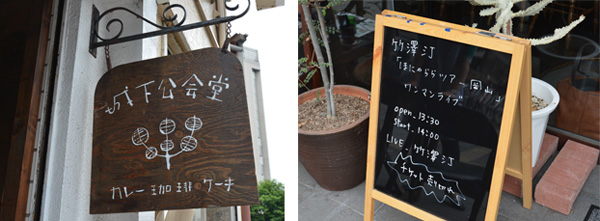 城下公会堂
カレー 珈琲 ケーキ
竹澤汀
「まにのららツアー_岡山」
ワンマンライブ
open_13:30
start_14:00
LIVE_竹澤汀
チケット売り切れ